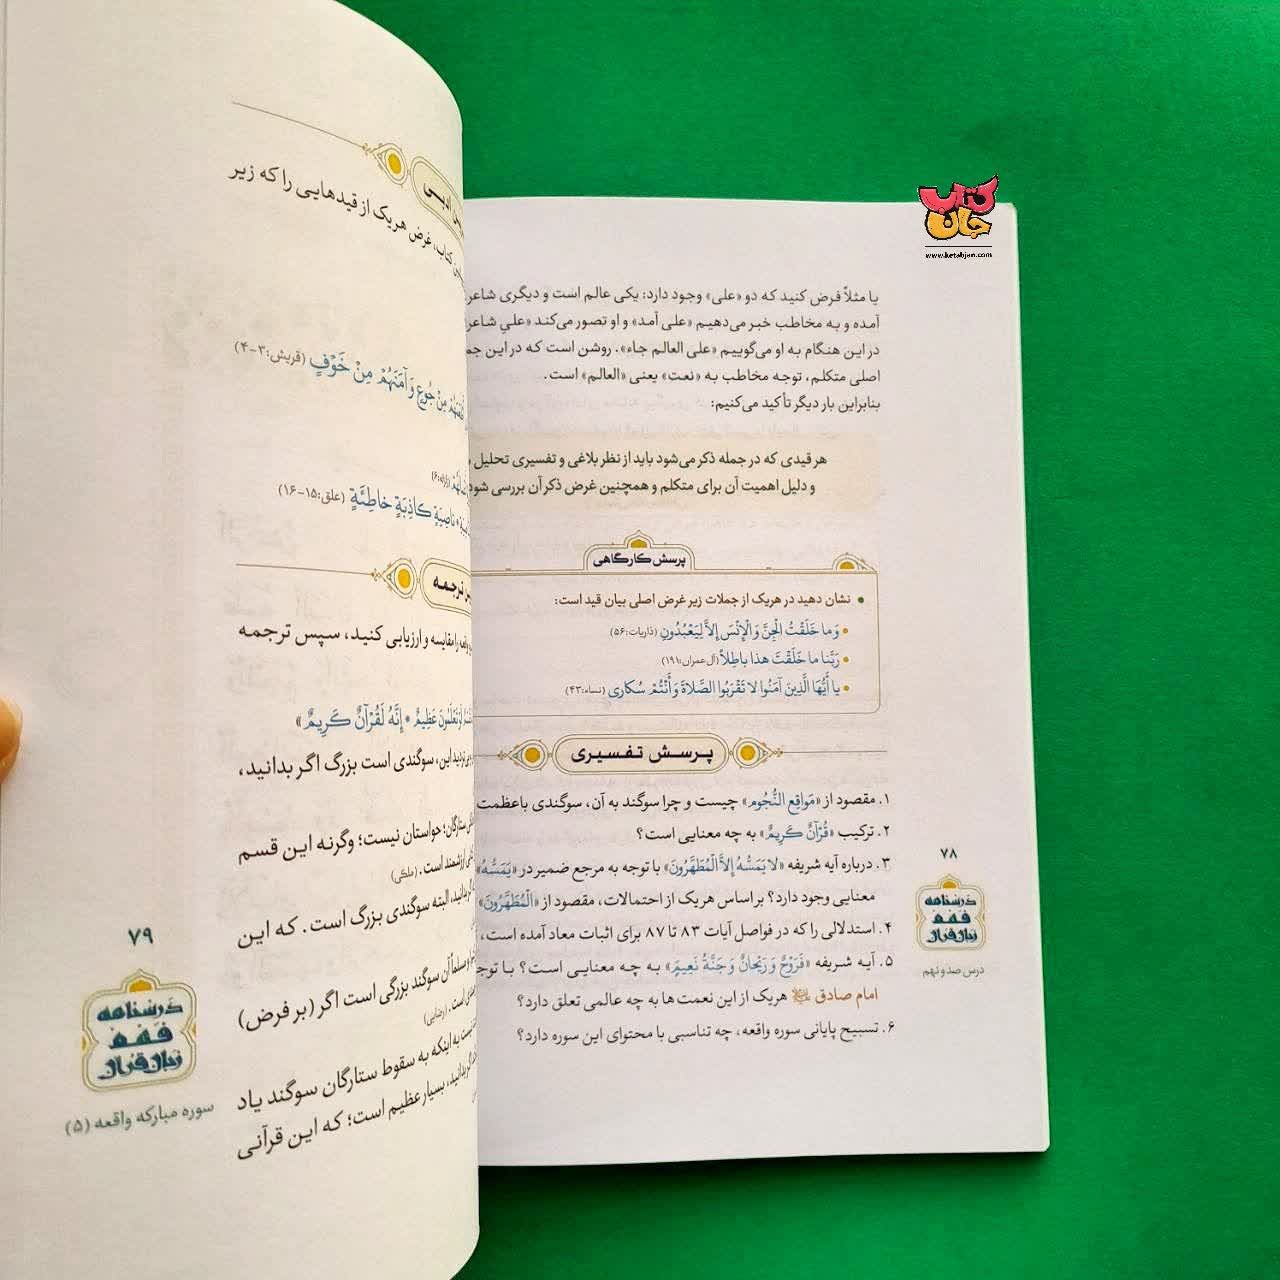 کتاب جان
www.ketabjan.com
یا مثلاً فرض کنید که دو «علی» وجود دارد: یکی عالم است و دیگری شاعر
آمده و به مخاطب خبر می‌دهیم «علی آمد» و او تصور می‌کند «علی شاعر
در این هنگام به او می‌گوییم «علی العالم جاء». روشن است که در این
اصلی متکلم، توجه مخاطب به «نعت» یعنی «العالم» است.
بنابراین بار دیگر تأکید می‌کنیم:
هر قیدی که در جمله ذکر می‌شود باید از نظر بلاغی و تفسیری تحلیل
و دلیل اهمیت آن برای متکلم و همچنین غرض ذکر آن بررسی شود
پرسش کارگاهی
• نشان دهید در هریک از جملات زیر غرض اصلی بیان قید است:
• وَما خَلَقْتُ الْجِنَّ وَالْإِنْسَ إِلَّا لِيَعْبُدُونِ (ذاریات:۵۶)
• رَبَّنا ما خَلَقْتَ هذا باطِلاً (آل عمران:۱۹۱)
• يا أَيُّهَا الَّذِينَ آمَنُوا لا تَقْرَبُوا الصَّلاةَ وَأَنْتُمْ سُكارى (نساء:۴۳)
پرسش تفسیری
۱. مقصود از «مَواقِعِ النُّجُومِ» چیست و چرا سوگند به آن، سوگندی باعظمت
۲. ترکیب «قُرْآنٌ كَرِيمٌ» به چه معنایی است؟
۳. درباره آیه شریفه «لا يَمَسُّهُ إِلَّا الْمُطَهَّرُونَ» با توجه به مرجع ضمیر در «يَمَسُّهُ»
معنایی وجود دارد؟ بر اساس هریک از احتمالات، مقصود از «الْمُطَهَّرُونَ»
۴. استدلالی را که در فواصل آیات ۸۳ تا ۸۷ برای اثبات معاد آمده است،
۵. آیه شریفه «فَرَوْحٌ وَ رَيْحانٌ وَ جَنَّةُ نَعِيمٍ» به چه معنایی است؟ با توجه
امام صادق هریک از این نعمت ها به چه عالمی تعلق دارد؟
۶. تسبیح پایانی سوره واقعه، چه تناسبی با محتوای این سوره دارد؟
۷۸
درسنامه
فهم
زبان قرآن
درس صد و نهم
ادبی
کتاب، غرض هریک از قیدهایی را که زیر
مِنْ جُوعٍ وَ آمَنَهُمْ مِنْ خَوْفٍ (قریش:۳-۴)
ناصِيَةٍ كاذِبَةٍ خاطِئَةٍ (علق:۱۵-۱۶)
ترجمه
را مقایسه و ارزیابی کنید، سپس ترجمه
لَوْ تَعْلَمُونَ عَظِيمٌ * إِنَّهُ لَقُرْآنٌ كَرِيمٌ»
این، سوگندی است بزرگ اگر بدانید،
ستارگان؛ حواستان نیست؛ وگرنه این قسم
ارزشمند است. (ملکی)
البته سوگندی بزرگ است. که این
و مسلماً آن سوگند بزرگی است اگر (بر فرض)
است. (رضایی)
به اینکه به سقوط ستارگان سوگند یاد
بدانید، بسیار عظیم است؛ که این قرآنی
۷۹
درسنامه
فهم
زبان قرآن
سوره مبارکه واقعه (۵)